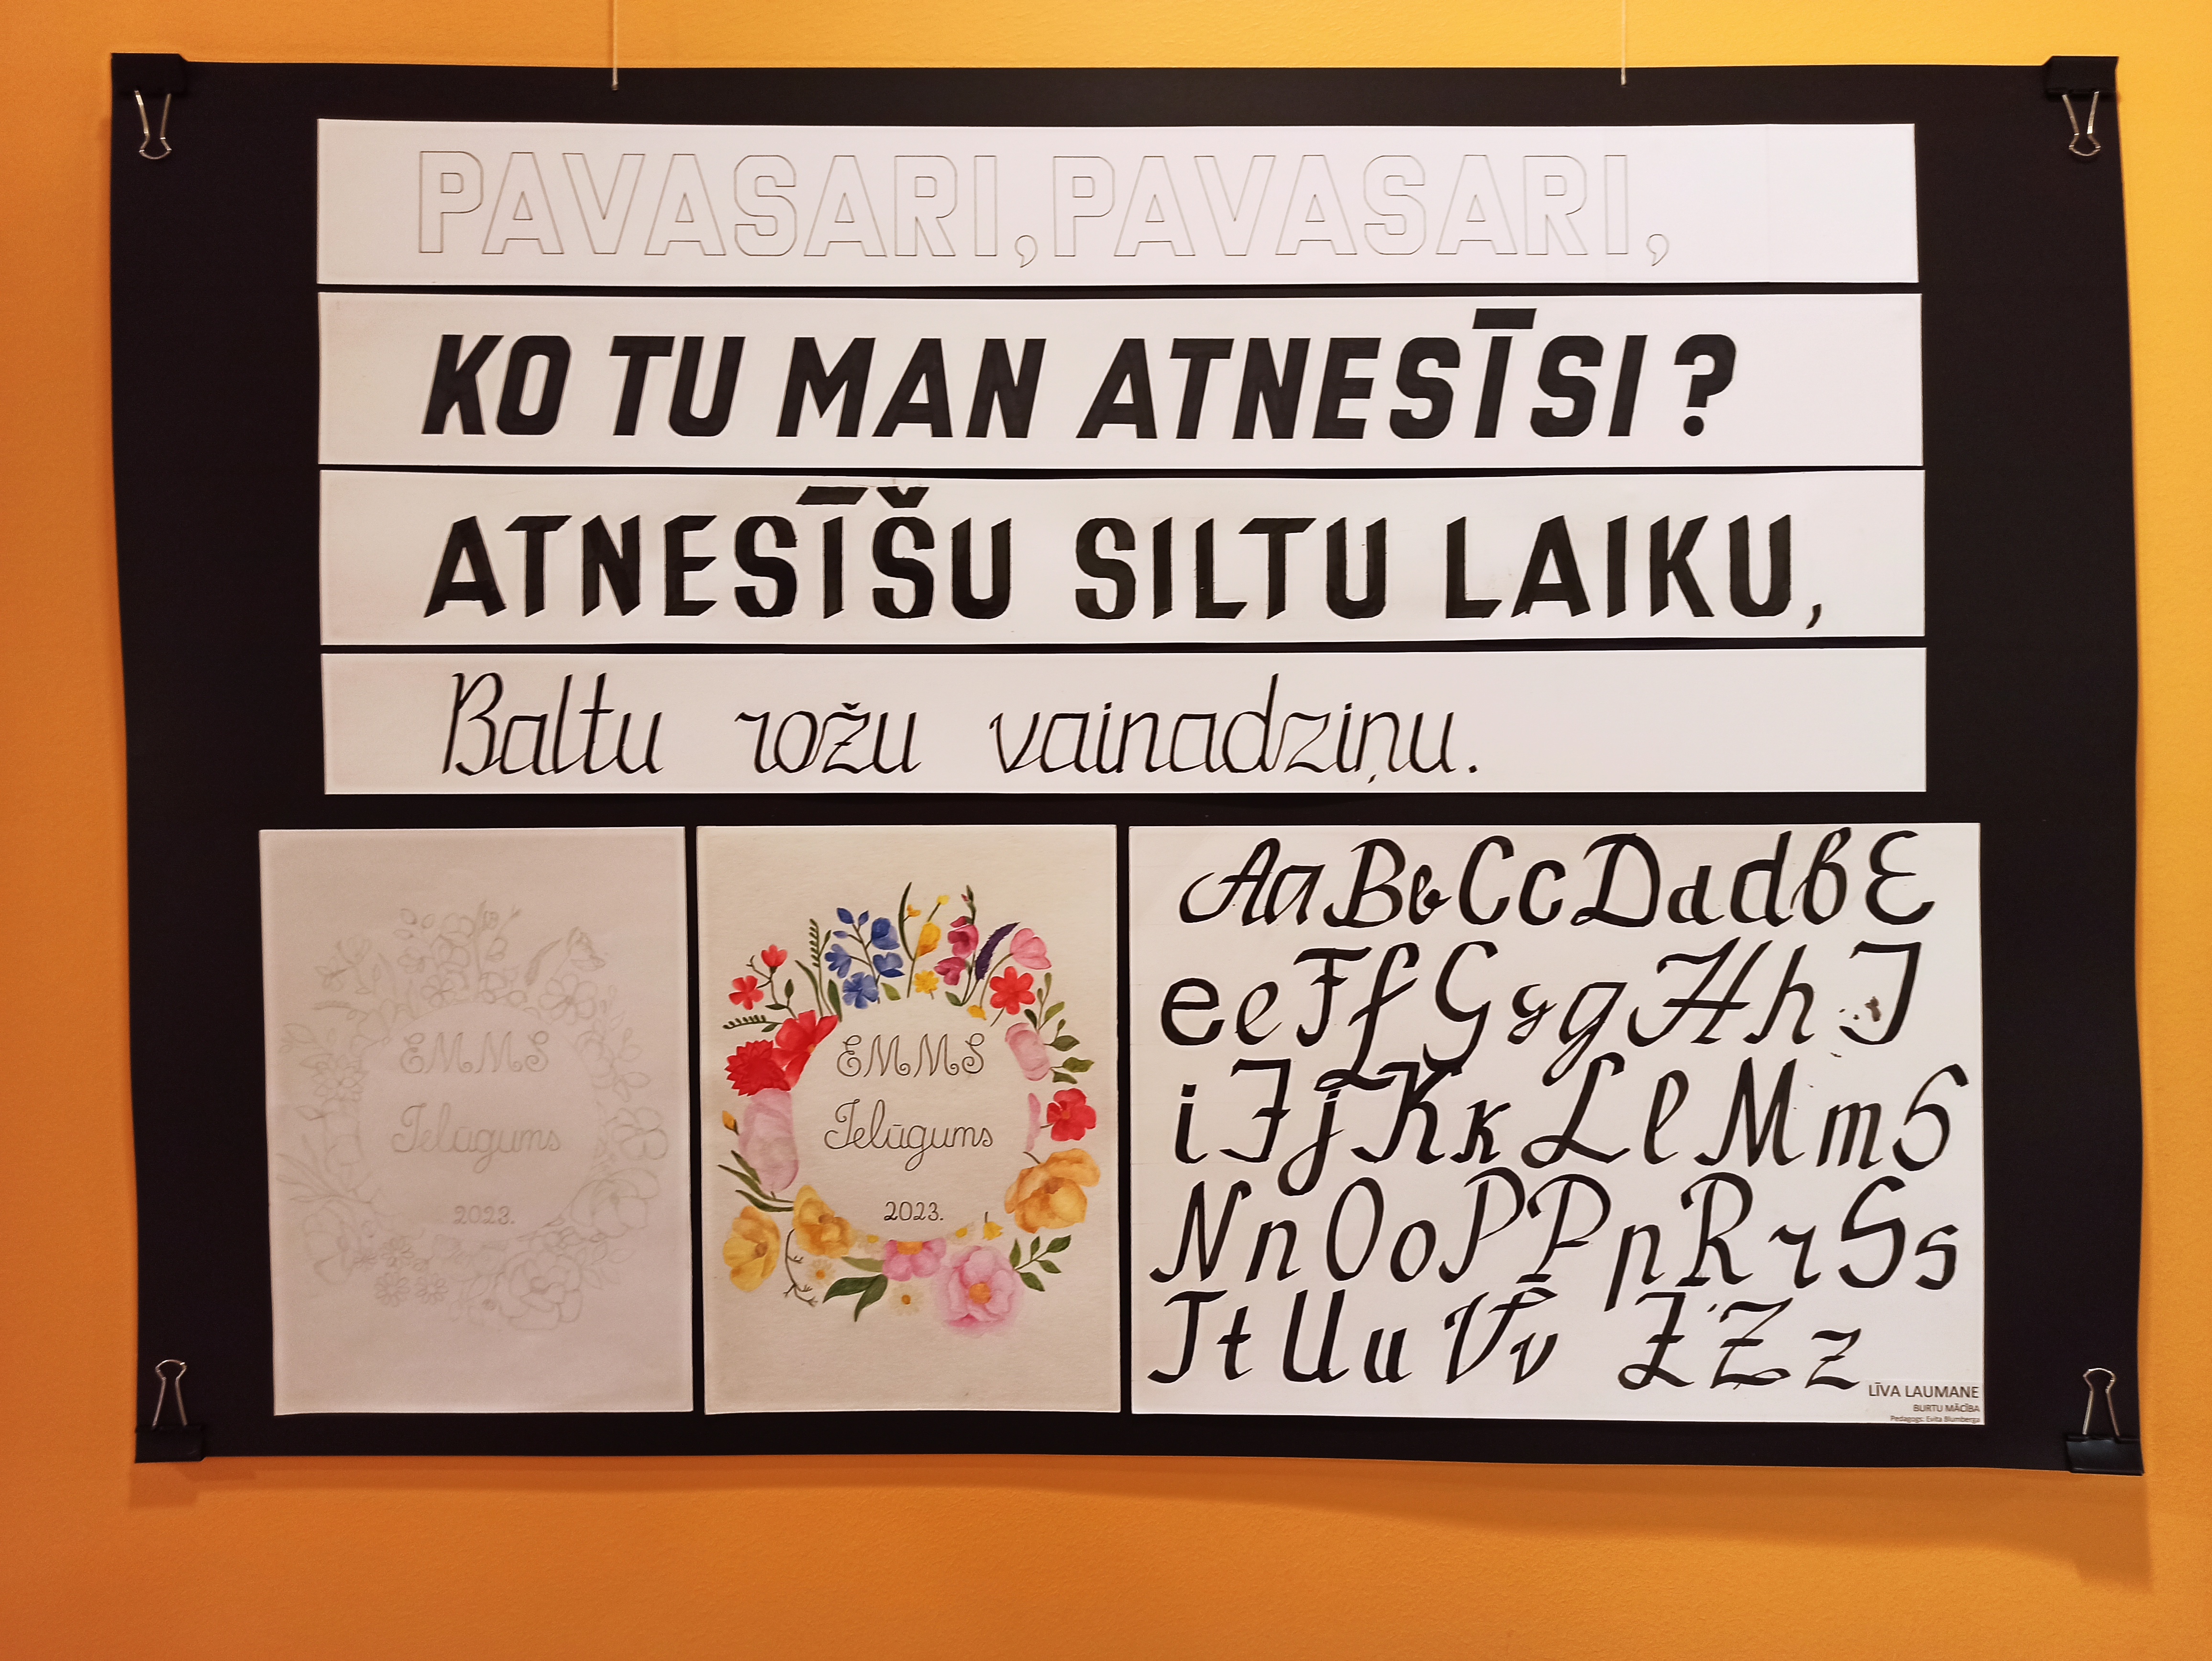 PAVASARI, PAVASARI,
KO TU MAN ATNESĪSI?
ATNESĪŠU SILTU LAIKU,
Baltu rožu vainadziņu.
EMMS
Ielūgums
2023.
EMMS
Ielūgums
2023.
Aa Bb Cc D d d d B E
e e F f G g g H h I
i J j K k L l M m S
N n O o P P p R r S s
T t U u V v Z Z z
LĪVA LAUMANE
BURTU MĀCĪBA
Pedagogs: Evita Blumberga